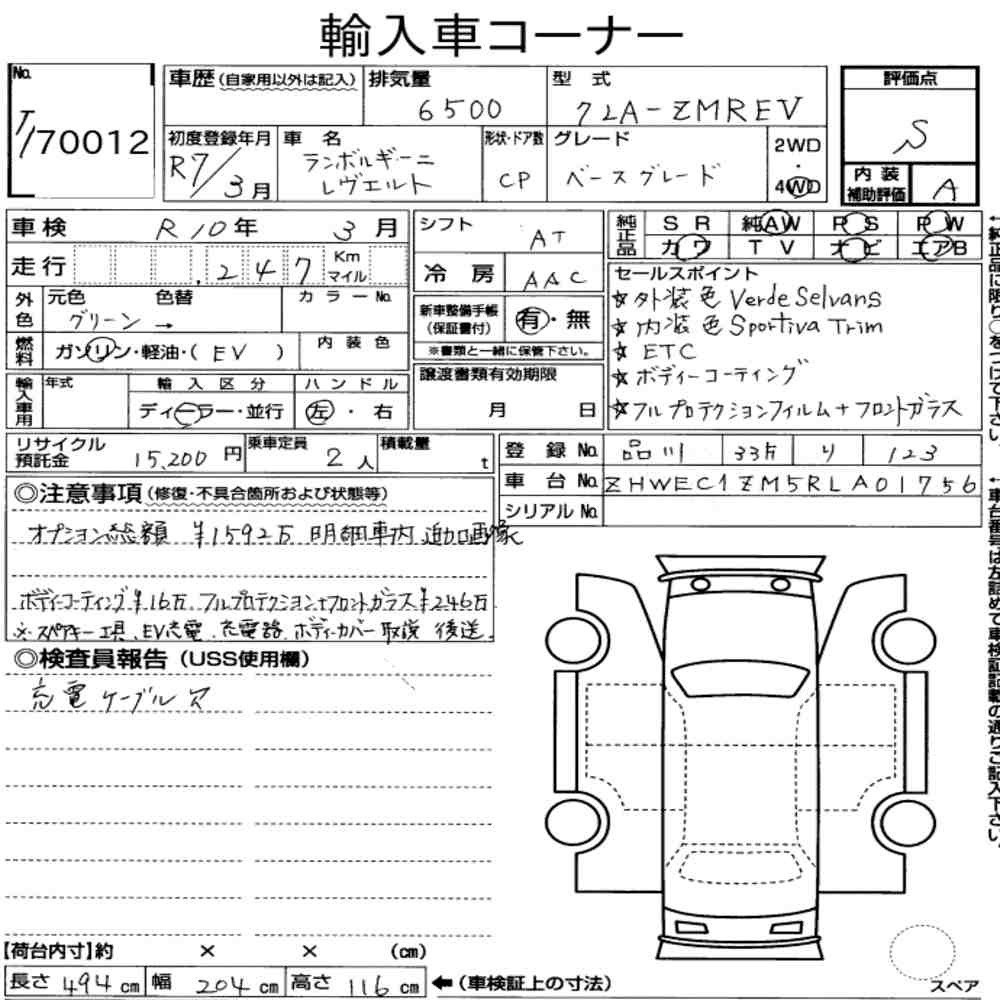 輸入車コーナー
No. 7/70012
車歴(自家用以外は記入)
排気量 6500
型式 7LA-ZMREV
評価点 S
初度登録年月 R7/3月
車名 ランボルギーニ レヴエルト
形状・ドア数 CP
グレード ベースグレード
2WD・4WD
内装補助評価 A
車検 R10年 3月
シフト AT
純正品 SR 純AW PS PW
カワ TV オビ エアB
走行 .247 Km マイル
冷房 AAC
セールスポイント
☆外装色 Verde Selvans
☆内装色 Sportiva Trim
☆ ETC
☆ボディーコーティング
☆フルプロテクションフィルム+フロントガラス
外色 元色 色替 カラーNo.
グリーン →
新車整備手帳(保証書付) 有・無
※書類と一緒に保管下さい。
燃料 ガソリン・軽油・( EV )
内装色
譲渡書類有効期限 月 日
輸入車用 年式 輸入区分 ハンドル
ディーラー・並行 左・右
リサイクル預託金 15,200円
乗車定員 2人
積載量 t
登録No. 品川 33 り 123
車台No. ZHWEC1ZM5RLA01756
シリアルNo.
◎注意事項(修復・不具合箇所および状態等)
オプション総額 ¥1592万 明細車内 追加画像
ボディーコーティング¥16万 フルプロテクション+フロントガラス¥246万
※スペアキー 工具、EV充電、充電器、ボディーカバー 取説 後送。
◎検査員報告(USS使用欄)
充電ケーブル欠
←純正品に限り○をつけて下さい。
←車台番号は左詰めで車検証記載の通りご記入下さい。
【荷台内寸】約 × × (cm)
長さ 494 cm 幅 204 cm 高さ 116 cm ←(車検証上の寸法)
スペア